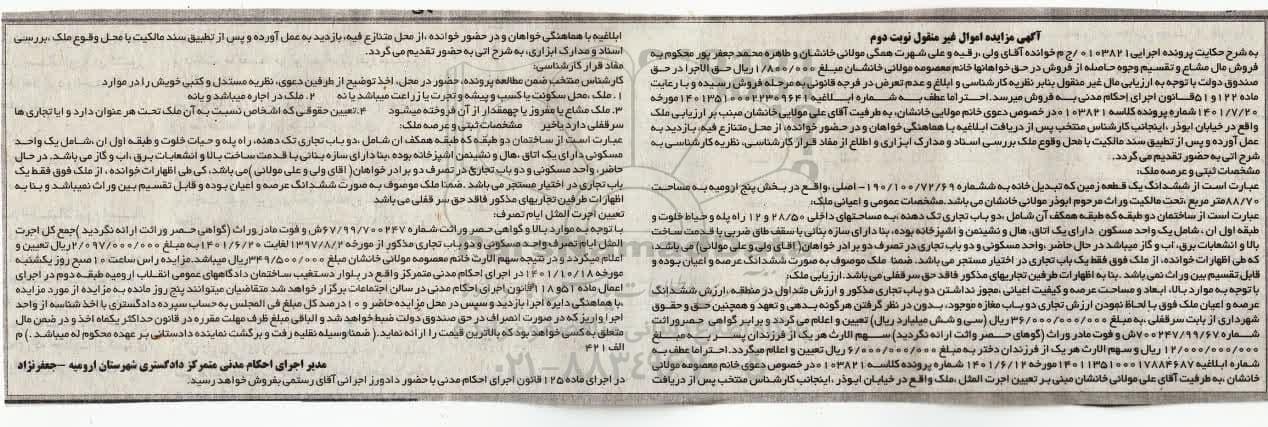 آگهی مزایده اموال غیر منقول نوبت دوم
به شرح حکایت پرونده اجرایی ۰۱۰۳۸۲۱/ج م خوانده آقای ولی ، رقیه و علی شهرت همگی مولائی خانشان و طاهره محمد جعفر پور محکوم به
فروش مال مشاع و تقسیم وجوه حاصله از فروش در حق خواهانها خانم معصومه مولائی خانشان مبلغ ۱/۸۰۰/۰۰۰ ریال حق الاجرا در حق
صندوق دولت با توجه به ارزیابی مال غیر منقول بنابر نظریه کارشناسی و ابلاغ و عدم تعرض در فرجه قانونی به مرحله فروش رسیده و با رعایت
ماده ۱۲۲ و ۵۱ قانون اجرای احکام مدنی به فروش میرسد. احتراما عطف به شماره ابلاغیه ۱۴۰۱۳۵۱۰۰۰۲۲۳۰۹۶۴۱ مورخه
۱۴۰۱/۷/۲۰ شماره پرونده کلاسه ۰۱۰۳۸۲۱ در خصوص دعوی خانم مولایی خانشان، به طرفیت آقای علی مولایی خانشان مبنی بر ارزیابی ملک
واقع در خیابان ابوذر ، اینجانب کارشناس منتخب پس از دریافت ابلاغیه با هماهنگی خواهان و در حضور خوانده، از محل متنازع فیه، بازدید به
عمل آورده و پس از تطبیق سند مالکیت با محل وقوع ملک بررسی اسناد و مدارک ابزاری و اطلاع از مفاد قرار کارشناسی، نظریه کارشناسی به
شرح اتی به حضور تقدیم می گردد.
مشخصات ثبتی و عرصه ملک:
عبارت است از ششدانگ یک قطعه زمین که تبدیل خانه به ششماره ۱۹۰/۱۰۰/۷۲/۶۹- اصلی ،واقع در بخش پنج ارومیه به مساحت
۸۸/۷۰ متر مربع ،تحت مالکیت وراث مرحوم ابوذر مولائی خانشان می باشد.مشخصات عمومی و اعیانی ملک:
عبارت است از ساختمان دو طبقه که طبقه همکف آن شامل ،دو باب تجاری تک دهنه ،به مساحتهای داخلی ۲۸/۵۰ و ۱۲ راه پله و حیاط خلوت و
طبقه اول ان ، شامل یک واحد مسکون دارای یک اتاق، هال و نشیمن و اشپزخانه بوده، بنا دارای سازه بنائی با سقف طاق ضربی با قدمت ساخت
بالا و انشعابات برق، اب و گاز میباشد در حال حاضر ،واحد مسکونی و دو باب تجاری در تصرف دو برادر خواهان( اقای ولی و علی مولائی) می باشد
که طی اظهارات خوانده، از ملک فوق فقط یک باب تجاری در اختیار مستجر می باشد. ضمنا ملک موصوف به صورت ششدانگ عرصه و اعیان بوده و
قابل تقسیم بین وراث نمی باشد .بنا به اظهارات طرفین تجاریهای مذکور فاقد حق سرقفلی می باشد. ارزیابی ملک:
با توجه به موارد بالا، ابعاد و مساحت عرصه و کیفیت اعیانی ،مجوز نداشتن دو باب تجاری مذکور و ارزش متداول در منطقه ،ارزش ششدانگ
عرصه و اعیان ملک فوق با لحاظ نمودن ارزش تجاری دو باب مغازه موجود، بدون در نظر گرفتن هرگونه بدهی و تعهد و همچنین حق و حقوق
شهرداری از بابت سرقفلی ،به مبلغ ۳۶/۰۰۰/۰۰۰/۰۰۰ ریال (سی و شش میلیارد ریال) تعیین و اعلام می گردد و برابر گواهی حصروراثت
شماره ۷۰۰۲۴۷/۹۹/۶۷ش و فوت مادر وراث (گوهای حصر واثت ارائه نکردید) سهم الارث هر یک از فرزندان پسر به مبلغ
۱۲/۰۰۰/۰۰۰/۰۰۰ ریال و سهم الارث هر یک از فرزندان دختر به مبلغ ۶/۰۰۰/۰۰۰/۰۰۰ ریال تعیین و اعلام میگردد.احتراما عطف به
شماره ابلاغیه ۱۴۰۱۱۳۵۱۰۰۰۱۷۸۸۴۶۸۷ مورخه ۱۴۰۱/۶/۱۲ شماره پرونده کلاسه ۰۱۰۳۸۲۱ در خصوص دعوی خانم معصومه مولائی
خانشان ،به طرفیت آقای علی مولائی خانشان مبنی بر تعیین اجرت المثل ،ملک واقع در خیابان ابوذر ، اینجانب کارشناس منتخب پس از دریافت
ابلاغیه با هماهنگی خواهان و در حضور خوانده ،از محل متنازع فیه، بازدید به عمل آورده و پس از تطبیق سند مالکیت با محل وقوع ملک ،بررسی
اسناد و مدارک ابزاری، به شرح اتی به حضور تقدیم می گردد.
مفاد قرار کارشناسی:
کارشناس منتخب ضمن مطالعه پرونده، حضور در محل، اخذ توضیح از طرفین دعوی، نظریه مستدل و کتبی خویش را در موارد
۱. ملک ،محل سکونت یا کسب و پیشه و تجرت یا زراعت میباشد یا نه ۲. ملک در اجاره میباشد و یا نه
۳. ملک مشاع یا مفروز یا چهمقدار از آن فروخته میشود ۴.تعیین حقوقی که اشخاص نسبت به آن ملک تحت هر عنوان دارد و ایا تجاری ها
سرقفلی دارد یاخیر مشخصات ثبتی و عرصه ملک:
عبارت است از ساختمان دو طبقه که طبقه همکف ان شامل ،دو باب تجاری تک دهنه، راه پله و حیات خلوت و طبقه اول ان ،شامل یک واحد
مسکونی دارای یک اتاق ،هال و نشیمنن اشپزخانه بوده ،بنا دارای سازه بنائی با قدمت ساخت بالا و انشعابات برق، اب و گاز می باشد. در حال
حاضر، واحد مسکونی و دو باب تجاری در تصرف دو برادر خواهان( اقای ولی و علی مولائی )می باشد، کی طی اظهارات خوانده ، از ملک فوق فقط یک
باب تجاری در اختیار مستجر می باشد .ضمنا ملک موصوف به صورت ششدانگ عرصه و اعیان بوده و قابل تقسیم بین وراث نمیباشد و بنا به
اظهارات طرفین تجاریهای مذکور فاقد حق سر قفلی می باشد
تعیین اجرت المثل ایام تصرف:
با توجه به موارد بالا و گواهی حصر وراثت شماره ۶۷/۹۹/۷۰۰۲۴۷ش و فوت مادر وراث (گواهی حصر وراثت ارائه نکردید )جمع کل اجرت
المثل ایام تصرف واحد مسکونی و دو باب تجاری مذکور از مورخه ۱۳۹۷/۸/۲ لغایت ۱۴۰۱/۶/۲۰ به مبلغ ۲/۰۹۷/۰۰۰/۰۰۰ریال تعیین و
اعلام میگردد و در نتیجه سهم الارث خانم معصومه مولائی خانشان مبلغ ۳۴۹/۵۰۰/۰۰۰ریال میباشد.مزایده راس ساعت ۱۰صبح روز یکشنبه
مورخه ۱۴۰۱/۱۰/۱۸در اجرای احکام مدنی متمرکز واقع در بلوار دستغیب ساختمان دادگاههای عمومی انقلاب ارومیه طبقه دوم در اجرای
اعمال ماده ۵۱ و ۱۱۸ قانون اجرای احکام مدنی در سالن اجتماعات برگزار خواهد شد متقاضیان میتوانند پنج روز مانده به مزایده از مورد مزایده
،با هماهنگی دایره اجرا بازدید و سپس در محل مزایده حاضر و ۱۰درصد کل مبلغ فی المجلس به حساب سپرده دادگستری با اخذ شناسه از واحد
اجرا واریز که در صورت انصراف در حق صندوق دولت ضبط خواهد شد و الباقی مبلغ ظرف مهلت مقرره در قانون حداکثر یکماه اخذ و در ضمن مال
متعلق به کسی خواهد بود که بالاترین قیمت را ارائه نماید. ( ضمنا وسیله نقلیه رفت و برگشت نماینده دادستانی بر عهده محکوم له میباشد . ) م
الف ۴۲۱
مدیر اجرای احکام مدنی متمرکز دادگستری شهرستان ارومیه –جعفرنژاد
در اجرای ماده ۱۲۵ قانون اجرای احکام مدنی با حضور دادورز اجرائی آقای رستمی بفروش خواهد رسید.